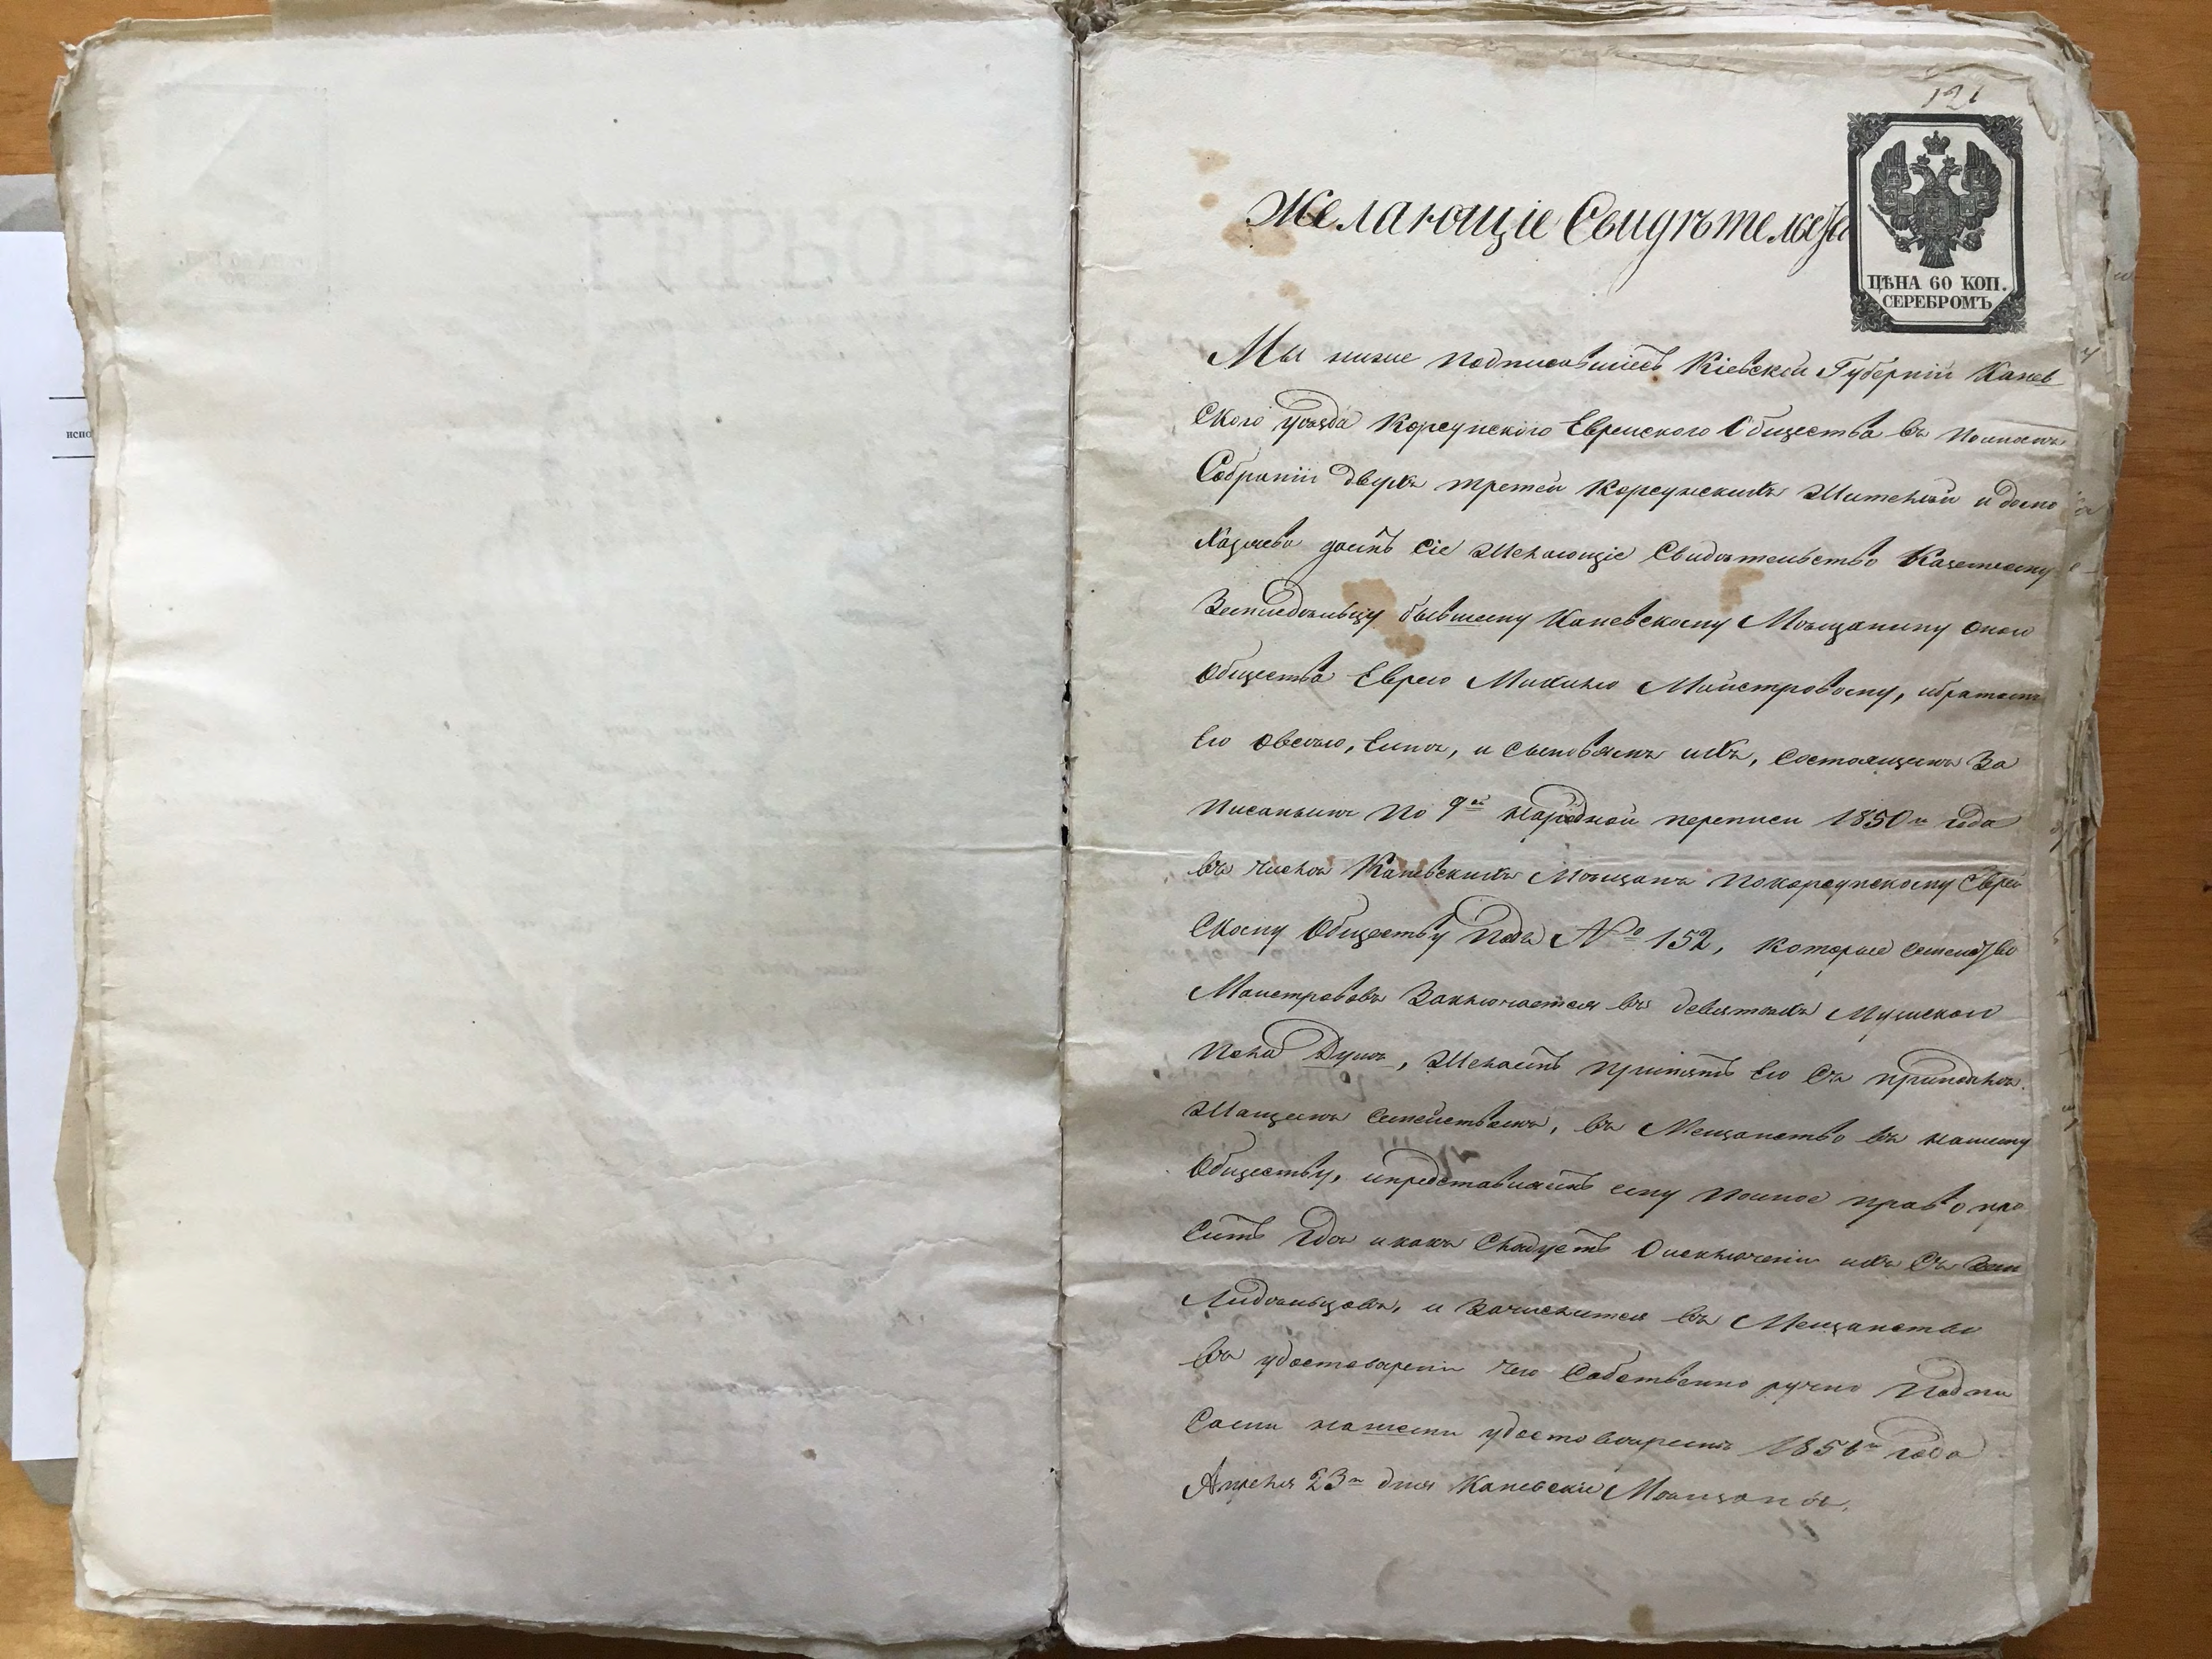 121
Желающіе Свидѣтельство
ЦѢНА 60 КОП.
СЕРЕБРОМЪ
Мы ниже подписавшіесь Кіевской Губерніи Канев
ского уѣзда Корсунского Еврейского Общества въ полномъ
Собраніи двухъ третей Корсунскихъ Жителей и домо
хазяевъ даемъ сіе Желающіе Свидѣтельство Казенному
Землѣдѣльцу бывшему Каневскому Мѣщанину оного
Общества Еврею Майстровому, и братьямъ
его Овсѣю, и сыновямъ ихъ, состоящимъ За
писаннымъ по 9й народной переписи 1850го года
въ числѣ Каневскихъ Мѣщанъ по Корсунскому Еврей
скому Обществу подъ № 152, которые семейство
Маистрововъ Заключается въ девятехъ Мужского
Пола Душъ, Желаемъ принять его Съ принадлѣ
жащемъ семействомъ, въ Мещанство въ нашему
Обществу, и представляемъ ему полное право про
сить гдѣ и какъ Слѣдуетъ О исключеніи ихъ Съ Зем
лидѣльцовъ, и Зачислится въ Мещанство
въ удостовѣреніи чего Собственно ручно Подпи
1856го года
Апреля 23го дня Каневскіе Мѣщане.
испо